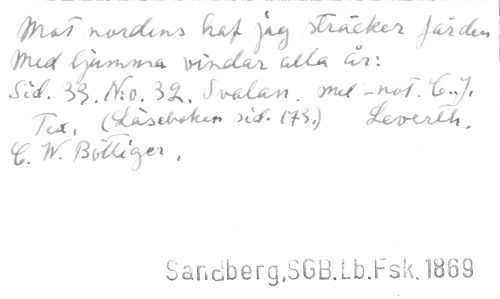 Mot nordens haf jag sträcker färden
Med ljumma vindar alla år:
Sid. 33. N:o. 32. Svalan. mel-not. C.J.
Tex. (Läseboken sid. 173.) Leverth.
C. W. Böttiger.
Sandberg,SGB.Lb.Fsk.1869